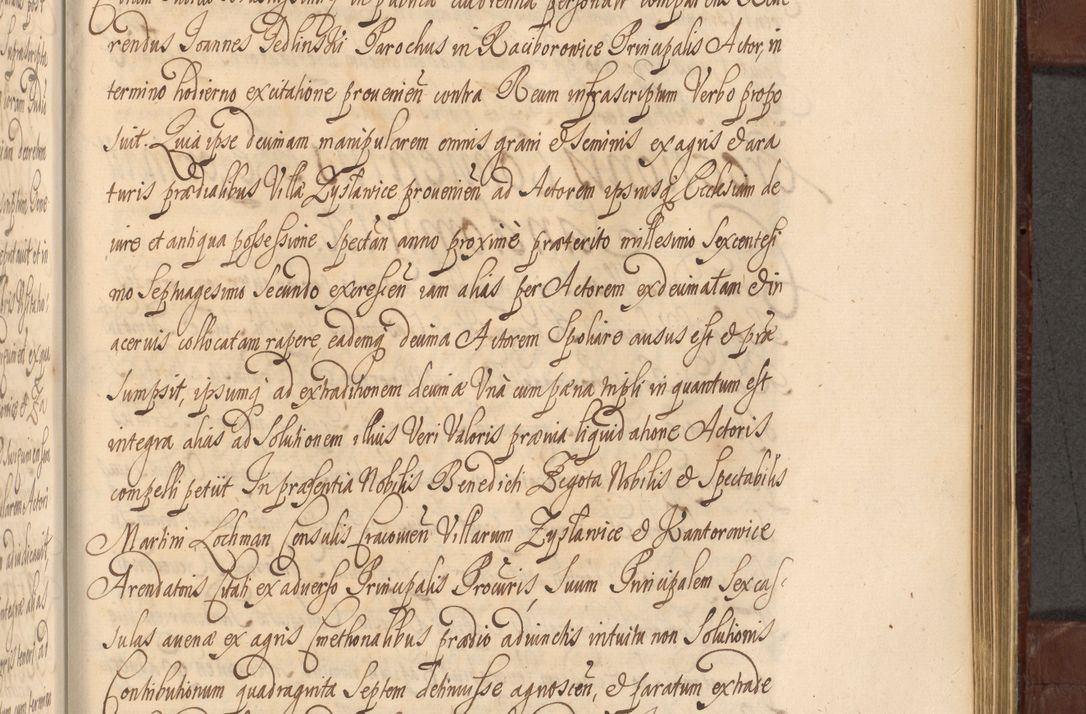 rendus Joannes Jedlinski Parochus in Raciborowice Principalis Actor, in
termino hodierno ex citatione prouenien̄ contra Reum infrascriptum Verbo propo
suit. Quia ipse decimam manipularem omnis grani et seminis ex agris et ara
turis prædialibus Villæ Zyslawice prouenien̄ ad Actorem ipsiusq Ecclesiam de
iure et antiqua possessione spectan̄ anno proximè præterito millesimo sexcentesi
mo septuagesimo secundo excrescen̄ iam alias per Actorem exdecimatam et in
aceruis collocatam rapere, eademq decima Actorem spoliare ausus est et præ
sumpsit, ipsumq ad extraditionem decimæ Vnà cum pæna tripli in quantum est
integra alias ad solutionem illius Veri Valoris præuia liquidatione Actoris
compelli petiit In præsentia Nobilis Benedicti Zegota Nobilis et Spectabilis
Martini Lochman Consulis Cracouien̄ Villarum Zyslawice et Kantorowice
Arendatoris Citati ex aduerso Principalis Procuris, suum Principalem sex cas-
sulas auenæ ex agris Cmethonalibus prædio adiunctis intuitu non solutionis
Contributionum quadraginta septem detinuisse agnoscen̄, et paratum extrade